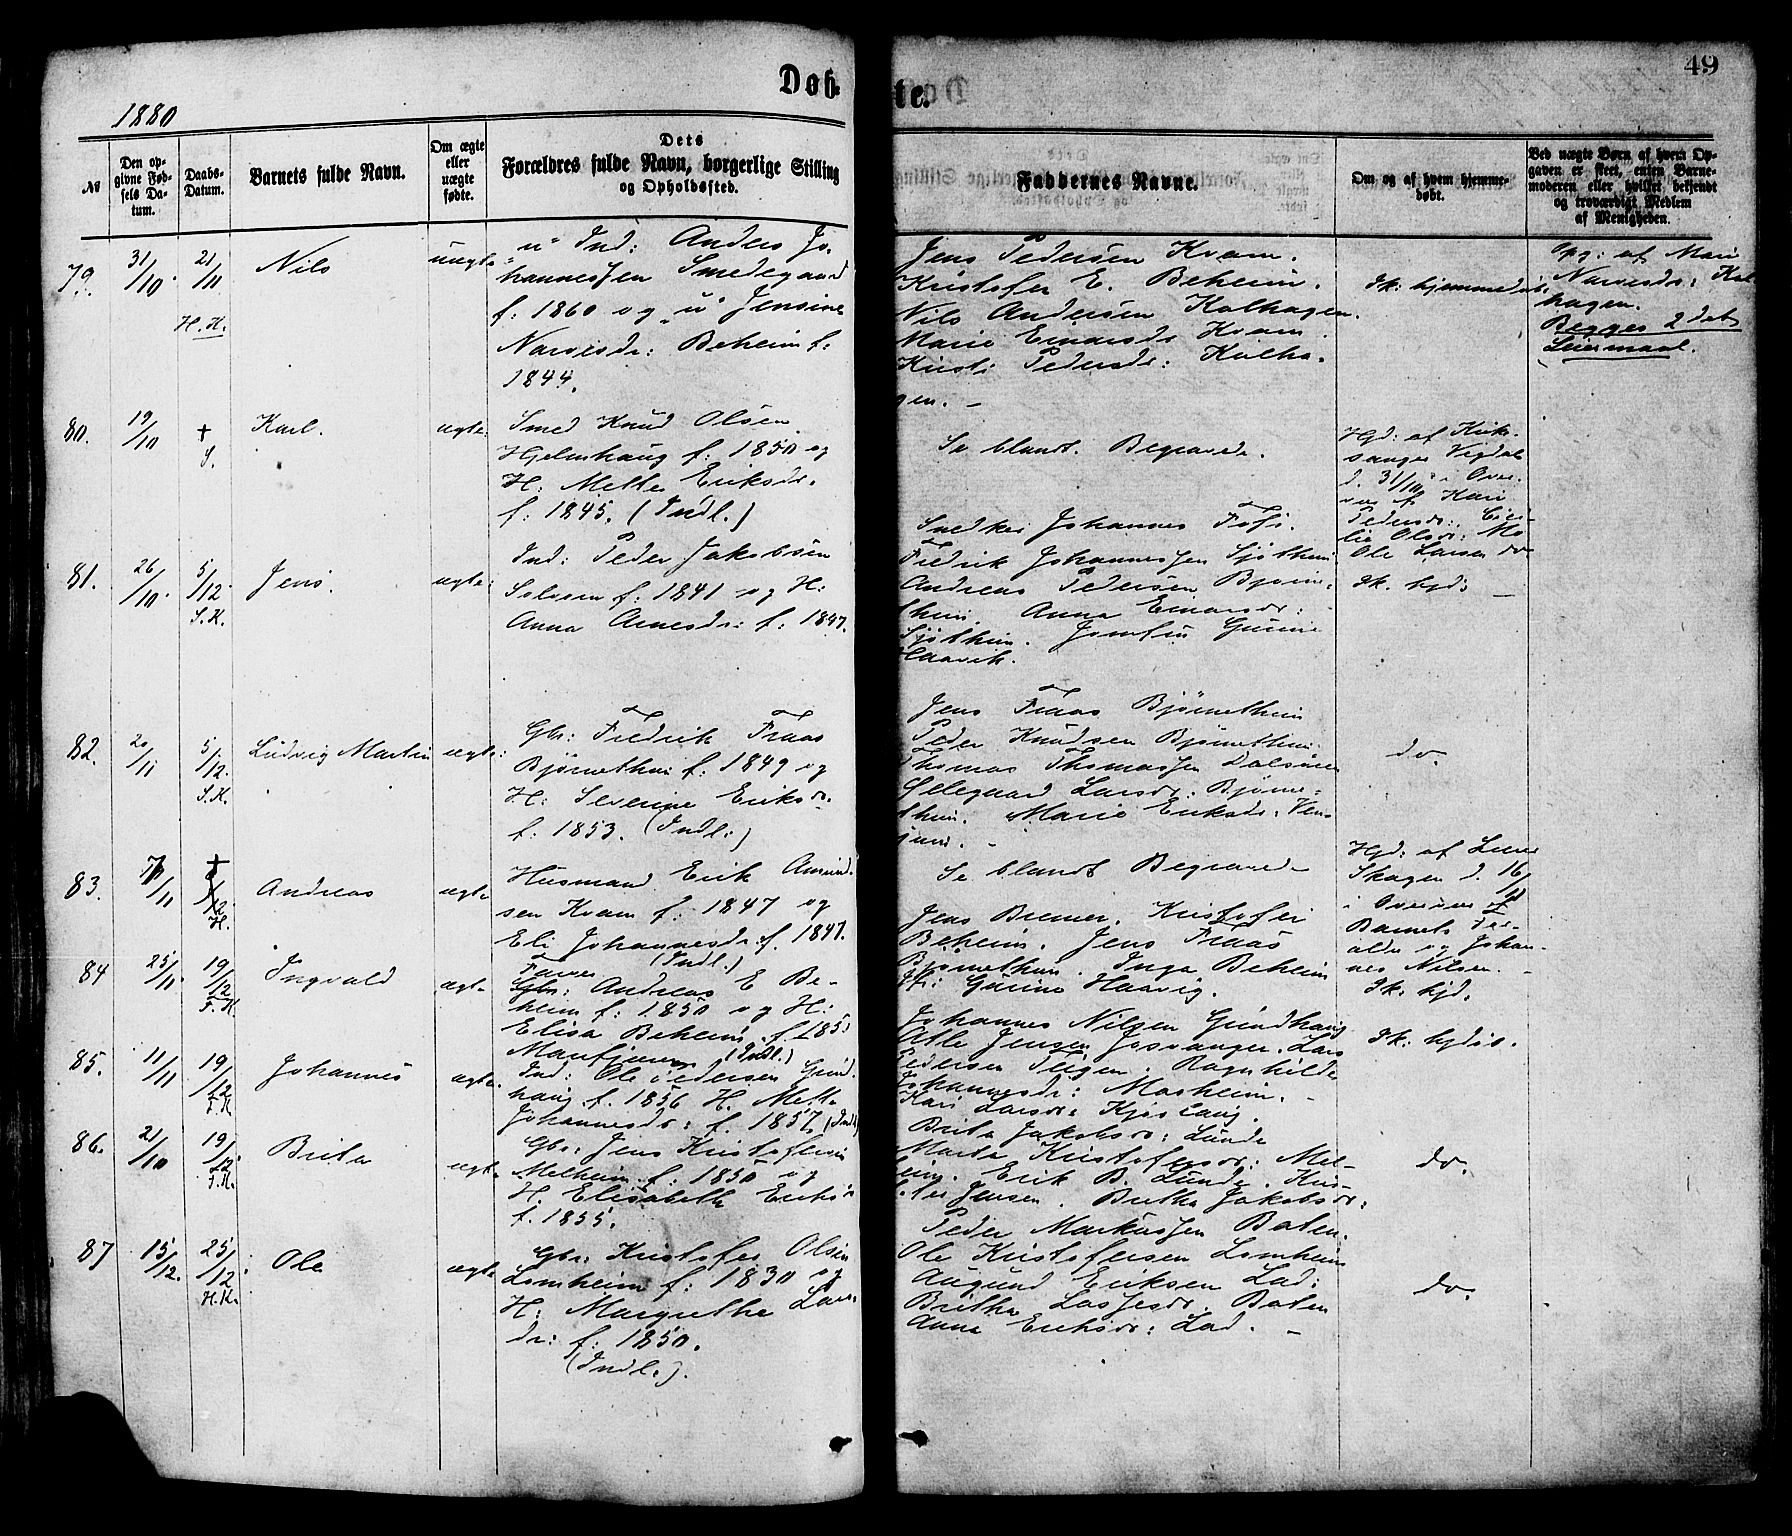 Døb
te.
49
1880
№
Den opgivne Fødsels Datum.
Daabs-Datum.
Barnets fulde Navn.
Om ægte eller uægte fødte.
Dets Forældres fulde Navn, borgerlige Stilling og Opholdssted.
Faddernes Navne.
Om og af hvem hjemmedøbt.
Ved uægte Børn af hvem Opgaven er skeet, enten Barnemoderen eller hvilket bekjendt og troværdigt Medlem af Menigheden.
79. 31/10. 21/11 H.K. Nils uægte
u Ind: Anders Jo-
hannessen Smedegaard
f. 1860 og u Jensine
Narvesdr: Beheim f.
1844.
Jens Pedersen Kvam.
Kristofer E. Beheim.
Nils Andersen Kalhagen.
Marie Einarsdr Kvam
Kristi Pedersdr: Kalha-
gen. -
Ik: hjemmedøbt
Opg: af Mari
Narvesdr: Kal-
hagen.
Begges 2det
Leiermaal.
80. 19/10 + S. Karl. ægte:
Smed Knud Olsen
Hjelmhaug f: 1850 og
H: Mette Eriksdr.
f: 1845. (Indl.)
Se blandt Begravede.
Hjd: af Kirke-
sanger Vigdal
d. 31/10 i Over-
vær af Kari
Pedersdr:
Ole Larsen
81. 26/10. 5/12. S.K. Jens. ægte:
Ind: Peder Jakobsen
f: 1841 og H:
Anna Arnesdr: f: 1847.
Snedker Johannes
Fredrik Johannessen Sjøthun
Andreas Pedersen Bjørne-
thun. Anna Einarsdr:
Sjøthun. Gurine
Haavik.
Ik. hjd: -
82. 20/11 5/12. S.K. Ludvig Martin ægte:
Gbr: Fredrik Fraas
Bjørnethun f: 1849 og
H: Severine Eriksdr.
f: 1853. (Indl:)
Jens Fraas Bjørnethun
Peder Knudsen Bjørnethun.
Thomas Thomassen Dalsøren
Sellegaard Larsdr: Bjørne-
thun. Marie Eriksdr:
do.
83. /11 + H. Andreas ægte
Husmand Erik Amund-
sen Kvam f: 1847 og
Eli Johannesdr. f. 1847.
(Indl.)
Se blandt Begravede
Hjd: af
Skagen d. 16/11
i Overvær af
Barnets For-
ældre og Johan-
nes Nilsen. -
84 25/11. 19/12 F.K. Ingvald ægte
Gbr: Andreas E Be-
heim f: 1850 og H:
Elisa Beheim f.
(Indl.)
Jens Bremer. Kristofer
Beheim. Jens Fraas
Bjørnethun. Inga Beheim
Gurine Haavig.
Ik: hjd.
85. 11/11 19/12 F.K. Johannes ægte.
Ind: Ole Pedersen Grind-
haug f. 1856 H. Mette
Johannesdr: f. 1857. (Indl)
Johannes Nilsen Grindhaug
Atle Jensen Josvanger. Lars
Pedersen Teigen. Ragnhilde
Johannesdr: Marheim.
Kari Larsdr: Kjøslaug.
Ik: hjdø.
86. 21/10 19/12. F.K. Brita ægte
Gbr: Jens Kristofersen
Melheim f: 1850 og
H. Elisabeth Eriksdr
f. 1855.
Brita Jakobsdr: Lunde
Marta Kristofersdr: Mel-
heim. Erik B. Lunde. Kris-
Jensen. Britha Jakobsdr:
do.
87 15/12. 25/12 H.K. Ole ægte
Gbr: Kristofer Olsen
Lomheim f: 1830 og
H: Margrethe Lars-
dr: f: 1850.
(Indl.).
Peder Markussen Baten.
Ole Kristofersen Lomheim
Augund Eriksen Lad:
Britha Lassesdr. Baten
Anna Eriksdr: Lad. -
do.